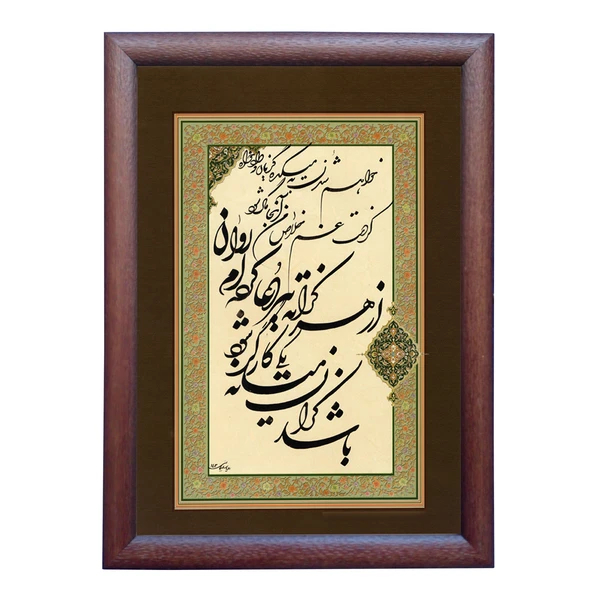 خواهم شدن به میکده گریان و دادخواه
کز دست غم خلاص من آنجا مگر شود
از هر کرانه تیر دعا کرده‌ام روان
باشد کز آن میانه یکی کارگر شود